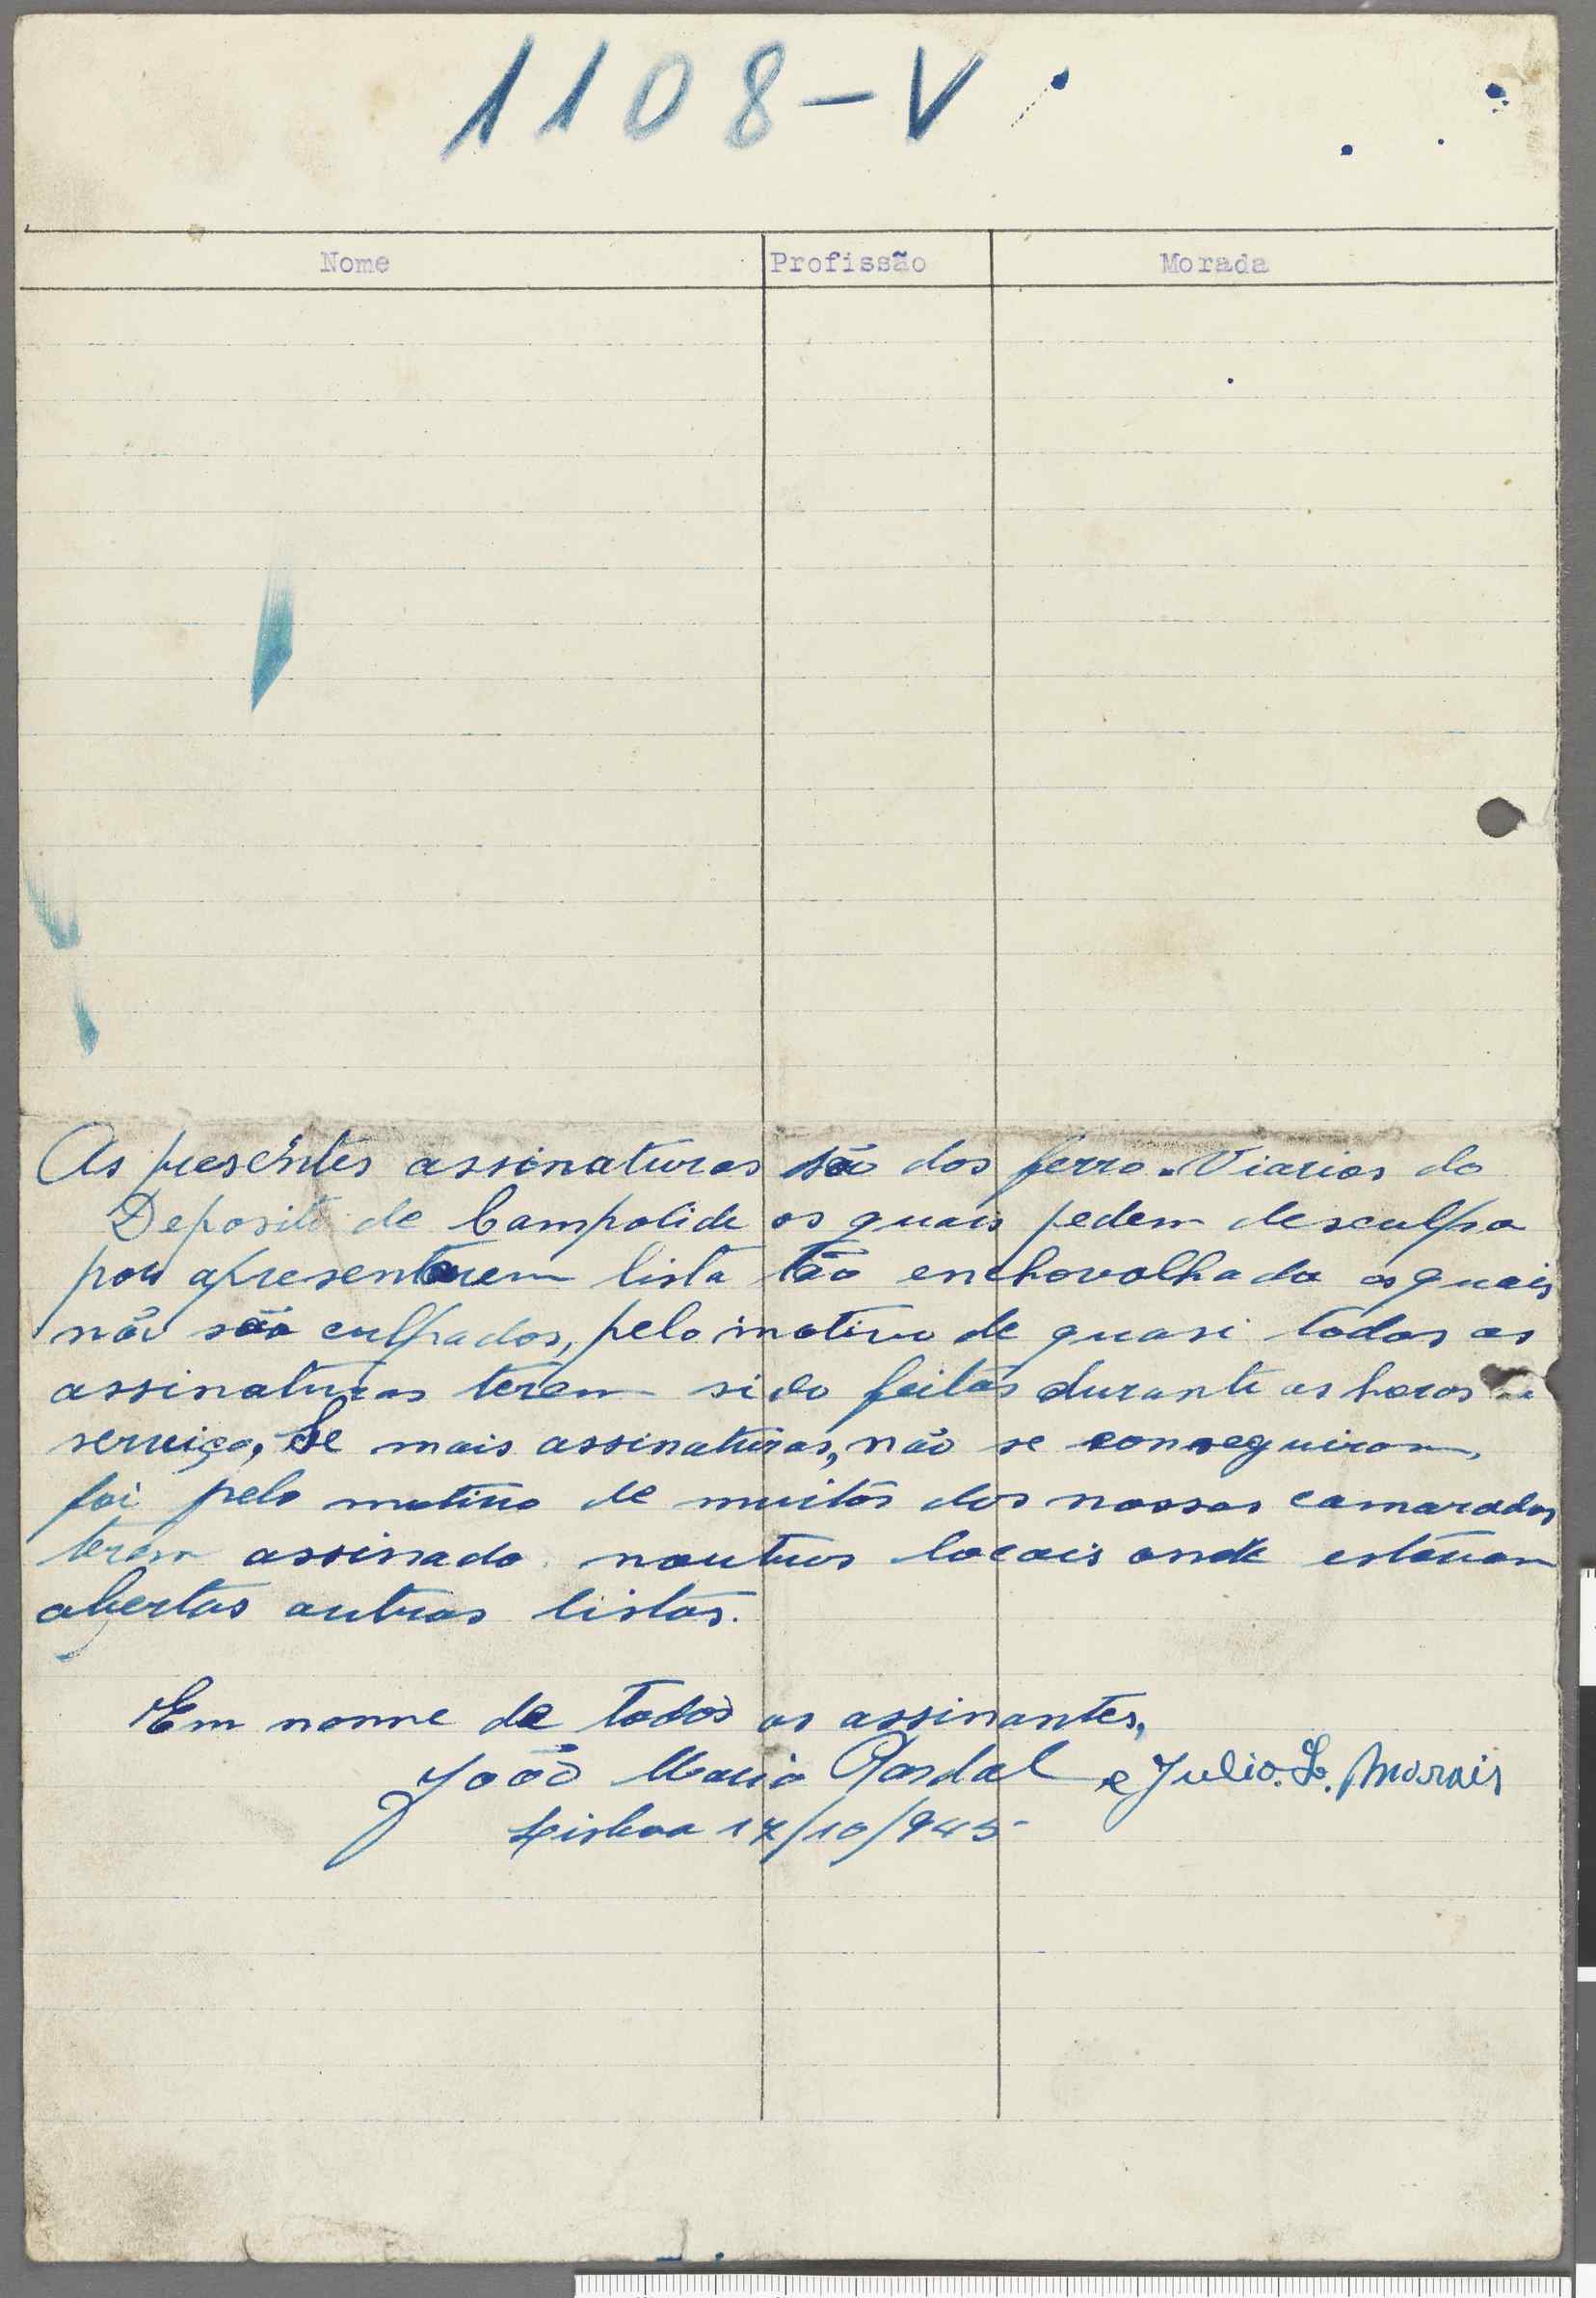 1108-V
Nome Profissão Morada
As presentes assinaturas são dos ferro-Viarios do
Deposito de Campolide os quais pedem desculpa
por apresentarem lista tão enchovalhada os quais
não são culpados, pelo motivo de quasi todas as
assinaturas terem sido feitas durante as horas
serviço, Se mais assinaturas, não se conseguiram,
foi pelo motivo de muitos dos nossos camaradas
terem assinado noutros locais onde estavam
abertas outras listas.
Em nome de todos os assinantes,
João Maria e Julio. L. Morais
Lisboa 17/10/945